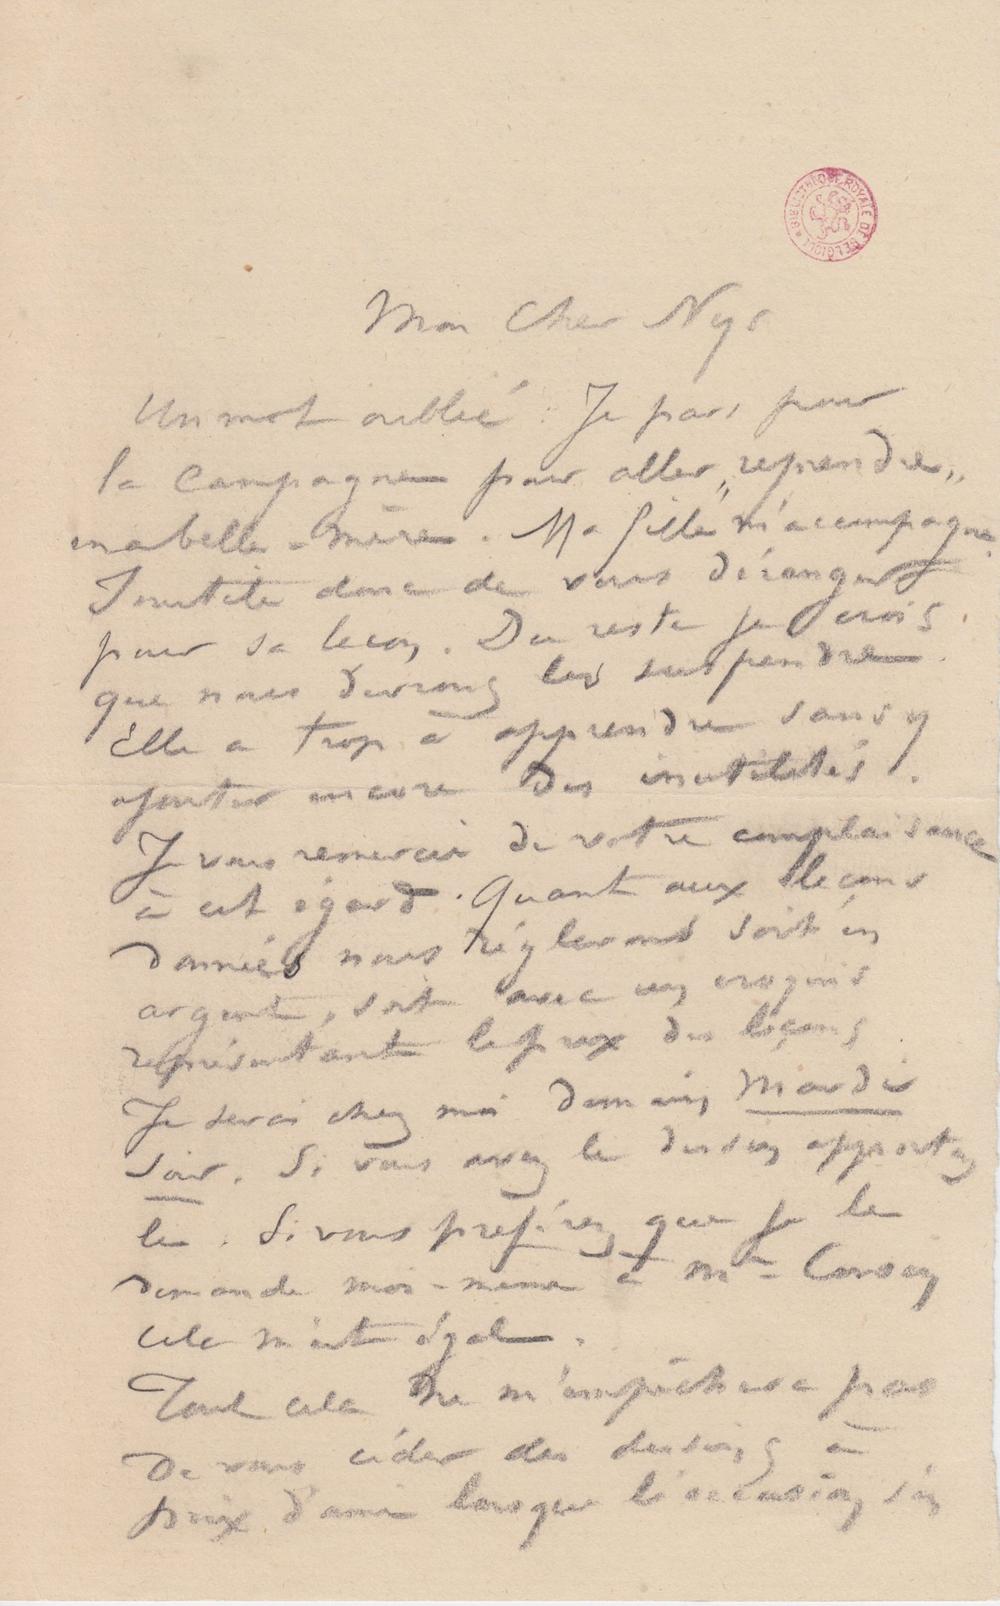 BIBLIOTHÈQUE ROYALE DE BELGIQUE
Mon Cher Nys
Un mot oublié : Je pars pour
la Campagne pour aller „reprendre„
ma belle-mère. Ma fille m'accompagne.
Inutile donc de vous déranger
pour sa leçon. Du reste je crois
que nous devrons les suspendre.
Elle a trop à apprendre sans y
ajouter encore des inutilités.
Je vous remercie de votre complaisance
à cet égard. Quant aux leçons
données nous réglerons soit en
argent, soit avec un croquis
représentant le prix des leçons.
Je serai chez moi demain Mardi
soir. Si vous avez le dessin apportez
le. Si vous preférez que je le
demande moi-meme à
cela m'est égal.
Tout cela ne m'empêchera pas
de vous céder des dessins à
prix d'ami lorsque l'occasion s'en